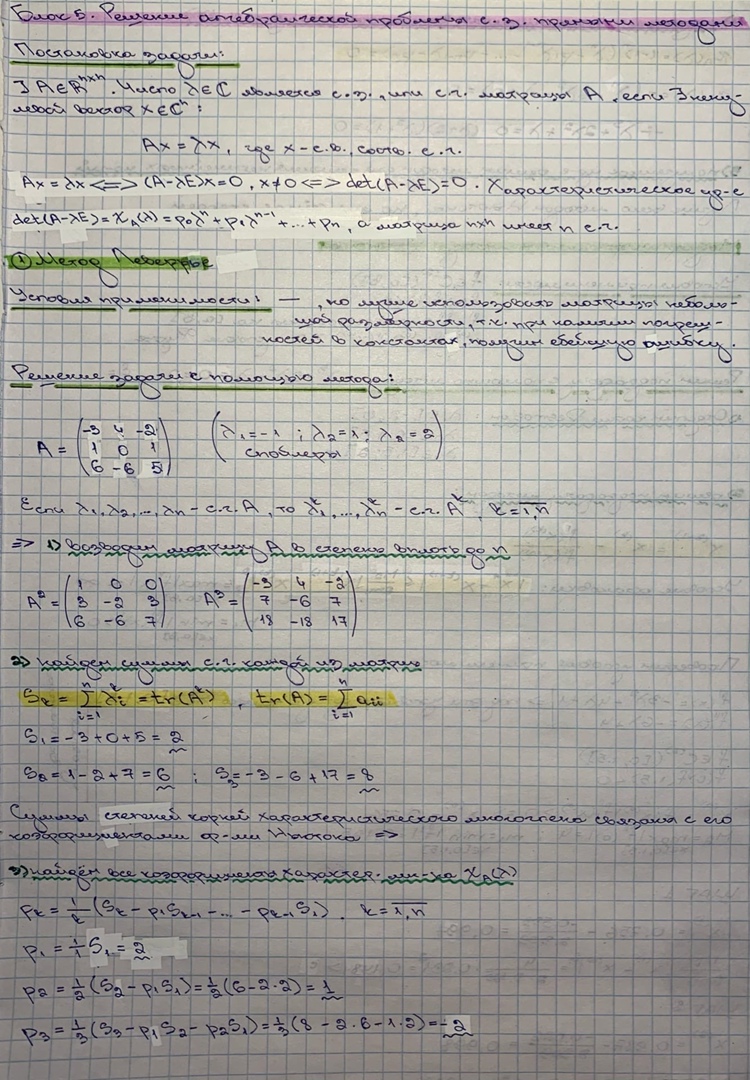 Блок 5. Решение алгебраической проблемы с.з. прямыми методами
Постановка задачи:
∃ A∈ℝⁿˣⁿ. Число λ∈ℂ является с.з., или с.ч. матрицы A, если ∃ нену-
левой вектор x∈ℂⁿ:
Ax = λx, где x – с.в., соотв. с.ч.
Ax = λx <=> (A-λE)x=0, x≠0 <=> det(A-λE)=0. Характеристическое ур-е
det(A-λE)=χ_A(λ)=p₀λⁿ+p₁λⁿ⁻¹+...+pₙ, а матрица n×n имеет n с.ч.
① Метод Леверрье
Условия применимости: — , но лучше использовать матрицы неболь-
шой размерности, т.к. при наличии погреш-
ностей в константах, получим ебейшую ошибку.
Решение задачи с помощью метода:
A = (-3 4 -2; 1 0 1; 6 -6 5) (λ₁=-1; λ₂=1; λ₂=2
спойлеры)
Если λ₁, λ₂, ..., λₙ – с.ч. A, то λ₁ᵏ, ..., λₙᵏ – с.ч. Aᵏ, k=1,n
=> 1) возводим матрицу A в степень вплоть до n
A²= (1 0 0; 3 -2 3; 6 -6 7) A³= (-3 4 -2; 7 -6 7; 18 -18 17)
2) найдём суммы с.ч. каждой из матриц
Sₖ = ∑ᵢ₌₁ⁿ λᵢᵏ = tr(Aᵏ), tr(A) = ∑ᵢ₌₁ⁿ aᵢᵢ
S₁ = -3+0+5 = 2
S₂ = 1-2+7 = 6 ; S₃ = -3-6+17 = 8
Суммы степеней корней характеристического многочлена связаны с его
коэффициентами ф-ми Ньютона =>
3) найдём все коэффициенты характер. мн-на χ_A(λ)
pₖ = 1/k (Sₖ - p₁Sₖ₋₁ - ... - pₖ₋₁S₁), k=1,n
p₁ = 1/1 S₁ = 2
p₂ = 1/2 (S₂ - p₁S₁) = 1/2 (6-2·2) = 1
p₃ = 1/3 (S₃ - p₁S₂ - p₂S₁) = 1/3 (8 - 2·6 - 1·2) = -2